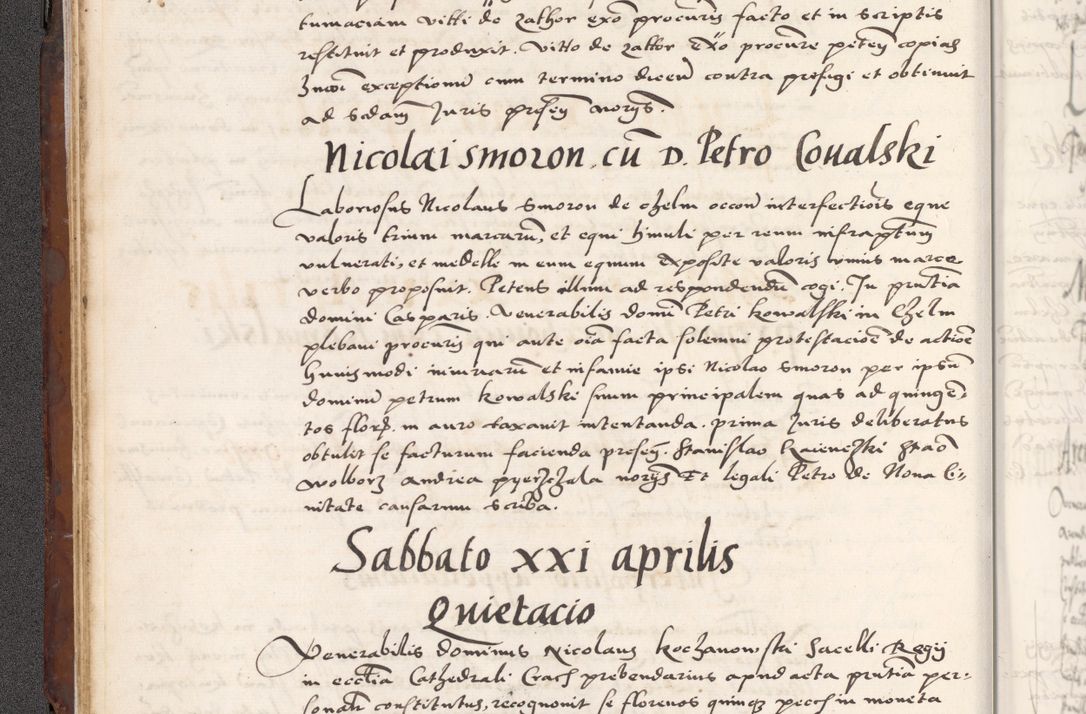 tumaciam Vitti de Zathor exō procuris facto et in scriptis
restituit et produxit. Vitto de Zathor Exō procure peteñ copias
exceptionū cum termino diceñ contra prefigi et obtinuit
ad sedam Juris preseñ norys.
Nicolai smoron cū D. Petro Coualski
Laboriosus Nicolaus Smoron de Chelm occone interfectiōis eque
valoris trium marcarum, et equi himuli per reum infraptum
vulnerati, et medelle in eum equum exposite valoris unius marce
verbo proposuit. Petens illum ad respondendū cogi. In pñtia
domini Casparis. Venerabilis domi Petri Kowalski in Chelm
plebani procuris qui ante oīa facta solemni protestacione de actione
huiusmodi iniuriarū et infamie ipsi Nicolao Smoron per ipsū
dominū petrum Kowalski suum principalem quas ad quingē-
tos flor. in auro taxauit intentanda. prima Juris deliberatus
obtulit se facturum facienda preseñ. Stanislao
wolborz Andrea norys Et legali Petro de Noua Ci-
uitate causarum scriba.
Sabbato xxi aprilis
Quietacio
Venerabilis dominus Nicolaus Kochanowski Sacelli Regij
in eccīlia Cathedrali Crach prebendarius apud acta pñtia per-
sonaīr constitutus, recognouit se florenos quinq pecch in moneta